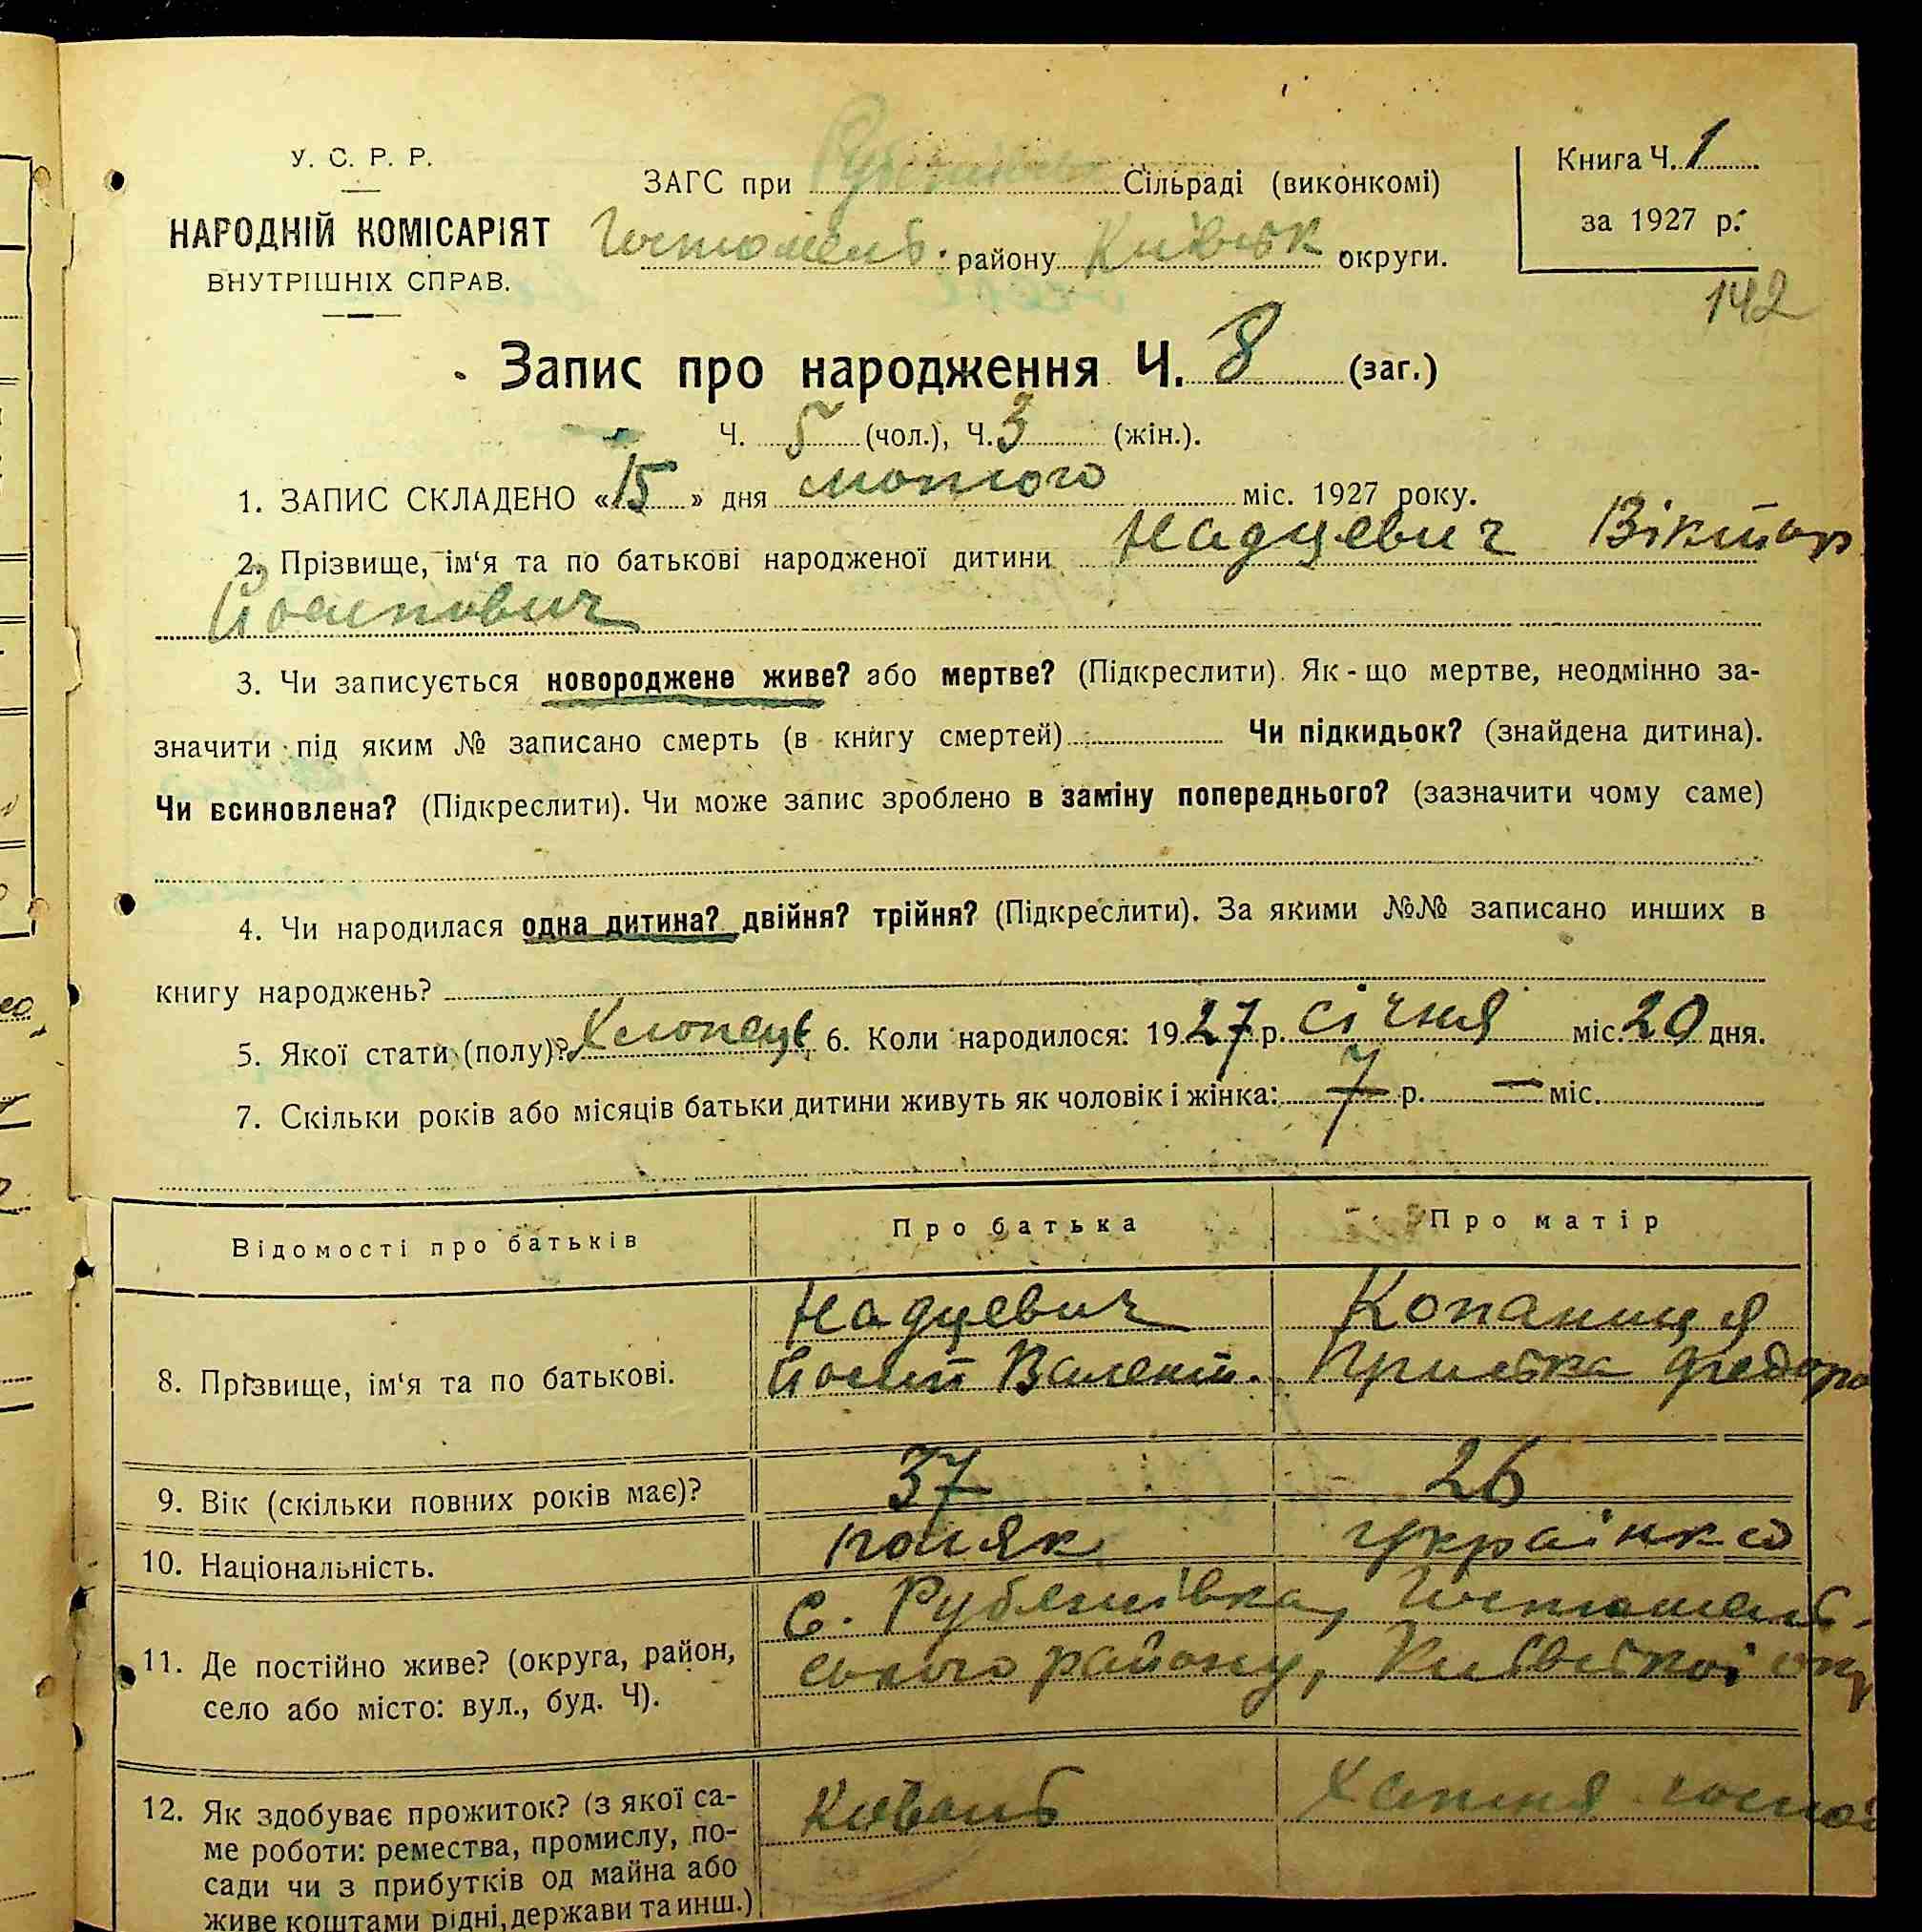 У. С. Р. Р.
НАРОДНІЙ КОМІСАРІЯТ
ВНУТРІШНІХ СПРАВ.
ЗАГС при Сільраді (виконкомі)
Гостомель. району Київськ округи.
Книга Ч. 1
за 1927 р.
142
Запис про народження Ч. 8 (заг.)
Ч. 5 (чол.), Ч. 3 (жін.).
1. ЗАПИС СКЛАДЕНО «15» дня лютого міс. 1927 року.
2. Прізвище, ім'я та по батькові народженої дитини Надцевич Віктор
Йосипович
3. Чи записується новороджене живе? або мертве? (Підкреслити). Як-що мертве, неодмінно за-
значити під яким № записано смерть (в книгу смертей) Чи підкидьок? (знайдена дитина).
Чи всиновлена? (Підкреслити). Чи може запис зроблено в заміну попереднього? (зазначити чому саме)
4. Чи народилася одна дитина? двійня? трійня? (Підкреслити). За якими №№ записано инших в
книгу народжень?
5. Якої стати (полу)? Хлопець 6. Коли народилося: 1927 р. січня міс. 20 дня.
7. Скільки років або місяців батьки дитини живуть як чоловік і жінка: 7 р. — міс.
Відомості про батьків Про батька Про матір
8. Прізвище, ім'я та по батькові.
Надцевич Копаниця
Йосип Валент. Федоро
9. Вік (скільки повних років має)? 37 26
10. Національність. поляк українка
11. Де постійно живе? (округа, район,
село або місто: вул., буд. Ч).
с. Рубежівка, Гостомель-
ського району, Київської окр
12. Як здобуває прожиток? (з якої са-
ме роботи: ремества, промислу, по-
сади чи з прибутків од майна або
живе коштами рідні, держави та инш.)
Коваль Хатня господ